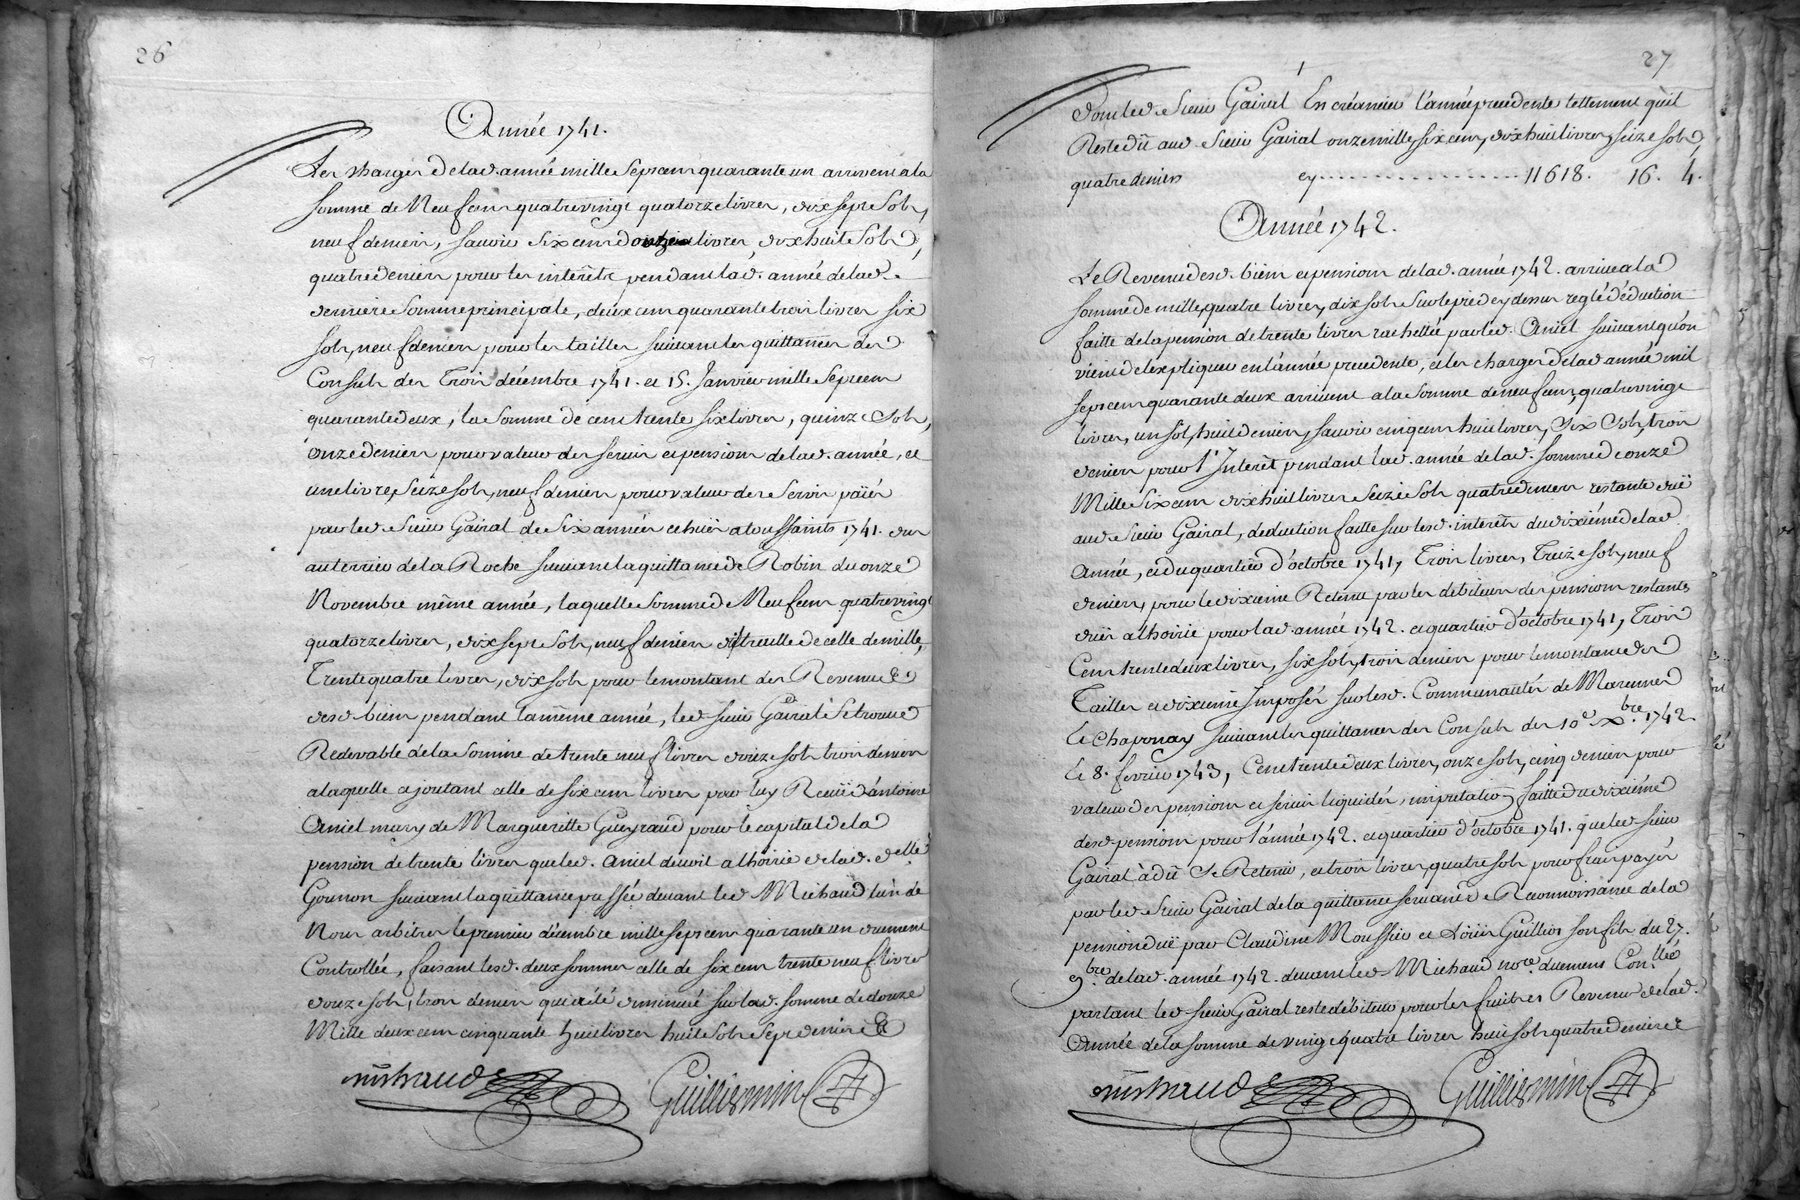 26
Année 1741.
Les charges de lad. année mille sept cent quarante un arrivent a la
somme de Neuf cent quatre vingt quatorze livres, dix sept sols,
neuf deniers, sauoir six cent livres dix huit sols,
quatre deniers pour les interêts pendant lad. année de lad.
derniere somme principale, deux cent quarante trois livres six
sols, neuf deniers pour les tailles suiuant les quittances des
Consuls des Trois décembre 1741. et 15. Januier mille Sept cent
quarante deux, la somme de cent trente six livres, quinze sols,
onze deniers pour valeur des seruis et pensions de lad. année, et
une livre, seize sols, neuf deniers pour valeur des Seruis païés
par led. Sieur Gairal de six années echues a toussaints 1741. du
au terrier de la Roche suiuant la quittance de Robin du onze
Novembre même année, laquelle somme de Neuf cent quatre vingt
quatorze livres, dix sept sols, neuf deniers distraitte de celle de mille,
Trente quatre livres, dix sols pour le montant des Revenus
desd. biens pendant la même année, led. sieur Gairal Se trouue
Redevable de la Somme de trente neuf livres douze sols trois deniers
a laquelle ajoutant celle de six cent livres par luy Reçüe d'antoine
Aniel mary de Margueritte Gueyraud pour le capital de la
pension de trente livres que led. Aniel deuoit a l'hoirie de lad. delle
Gounon suiuant la quittance passée deuant led. Michaud l'un de
Nous arbitres le premier décembre mille sept cent quarante un duement
Controllée, faisant lesd. deux sommes celle de six cent trente neuf livres
douze sols, trois deniers qui a été diminuée sur lad. somme de douze
Mille deux cent cinquante huit livres huit sols sept deniers
michaud Guillermin
27
dont led. Sieur Gairal Est créancier l'année precedente tellement qu'il
Reste dû aud. Sieur Gairal onze mille six cent, dix huit livres, seize sols,
quatre deniers cy 11618. 16. 4.
Année 1742.
Le Revenu desd. biens et pensions de lad. année 1742. arrive a la
somme de mille, quatre livres, dix sols sur le pied cy dessus reglé déduction
faitte de la pension de trente livres rachettée par led. Aniel suiuant qu'on
vient de l'expliquer en l'année precedente, et les charges de lad. année mil
sept cent quarante deux arrivent a la somme de neuf cent, quatre vingt
livres, un sol, huit deniers, sauoir cinq cent huit livres, six sols, trois
deniers pour l'Interêt pendant lad. année de lad. somme de onze
Mille six cent dix huit livres seize sols quatre deniers restante düe
aud. Sieur Gairal, deduction faitte sur lesd. interêts du dixiéme de lad.
Année, et du quartier d'octobre 1741, Trois livres, Treize sols, neuf
deniers, pour le dixieme Retenu par les débiteurs des pensions restantes
dües a l'hoirie pour lad. année 1742. et quartier d'octobre 1741, Trois
Cent trente deux livres, six sols, trois deniers pour le montant des
Tailles et dixieme Imposés sur lesd. Communautés de Marennes
et Chaponay suiuant les quittances des Consuls des 10e. Xbre. 1742.
et 8. feurier 1743, Cent trente deux livres, onze sols, cinq deniers pour
valeur des pensions et seruis liquidés, imputation faitte du dixiéme
desd. pensions pour l'année 1742. et quartier d'octobre 1741. que led. sieur
Gairal à dû Se Retenir, et trois livres, quatre sols pour frais payés
par led. Sieur Gairal de la quittance seruant de Reconnoissance de la
pension düe par Claudine Moussier et Loüis Guillion son fils du 27.
9bre. de lad. année 1742. deuant led. Michaud nore. duement Con.llée
partant led. sieur Gairal reste débiteur pour les fruits et Revenus de lad.
Année de la somme de vingt quatre livres huit sols quatre deniers
michaud Guillermin